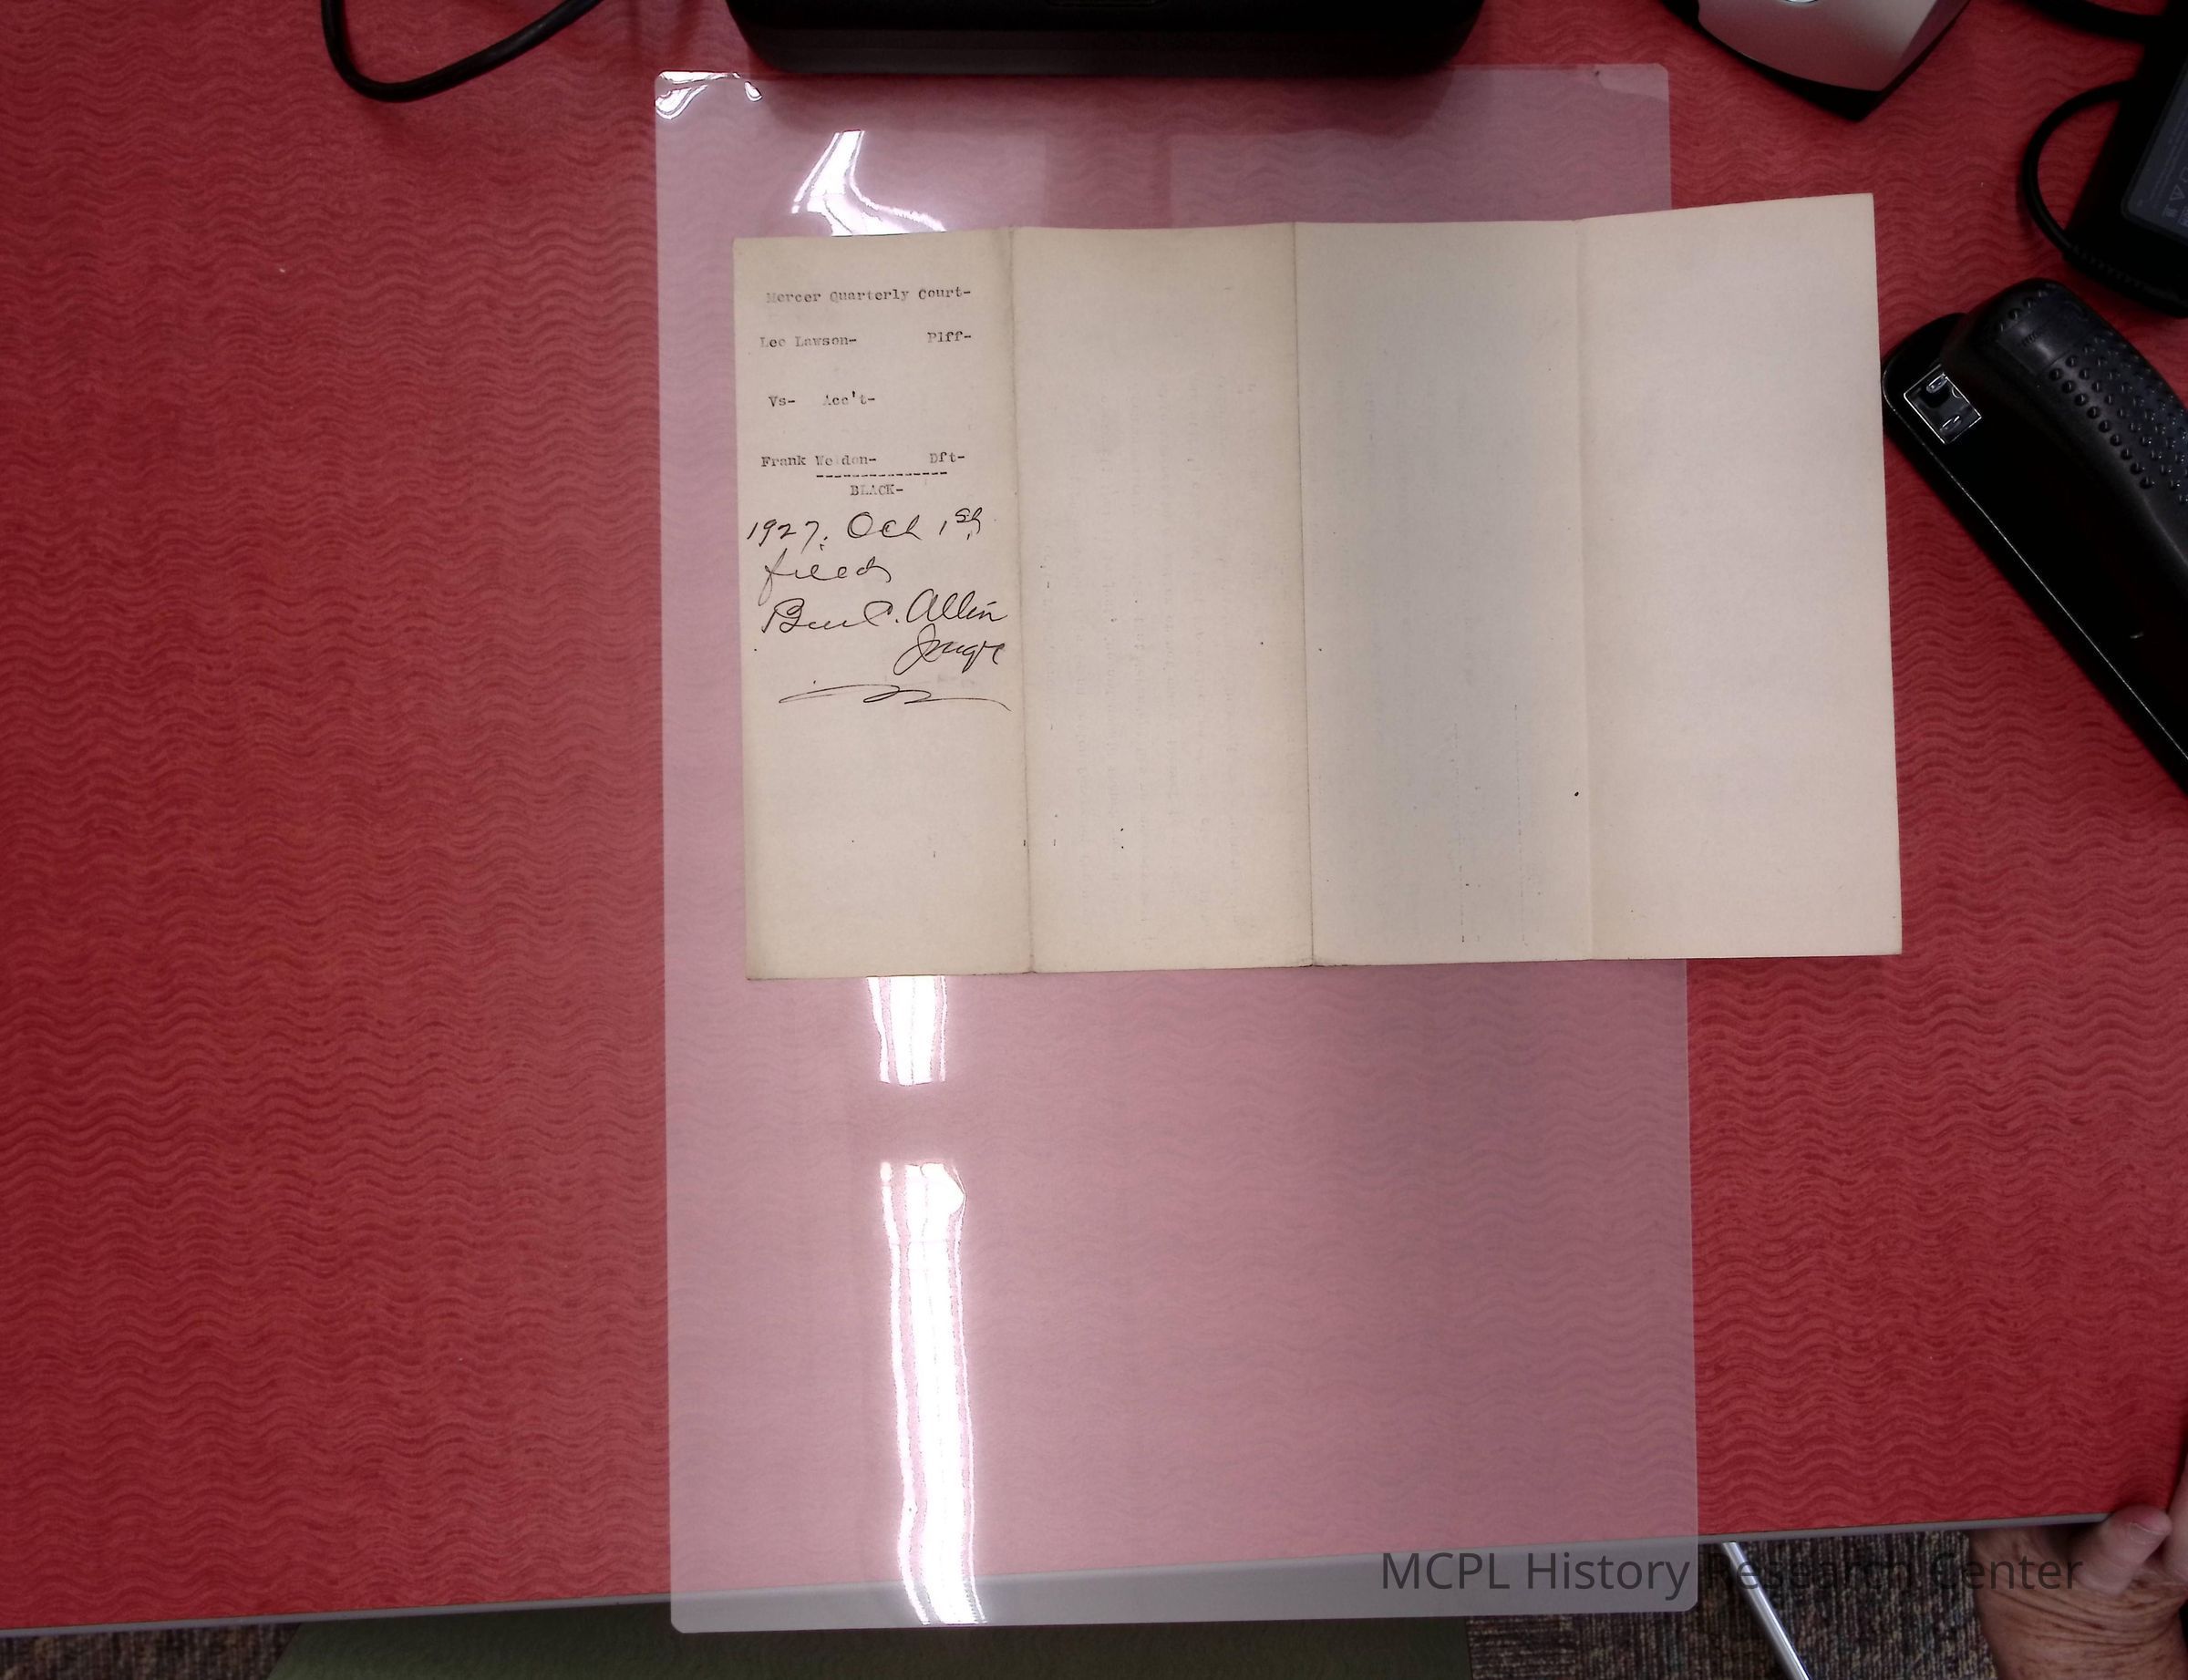 Mercer Quarterly Court-
Lee Lawson- Plff-
Vs- Acc't-
Frank Weldon- Dft-
---------------
BLACK-
1927. Oct 1st
filed
Ben C. Allin
Judge
MCPL History Research Center